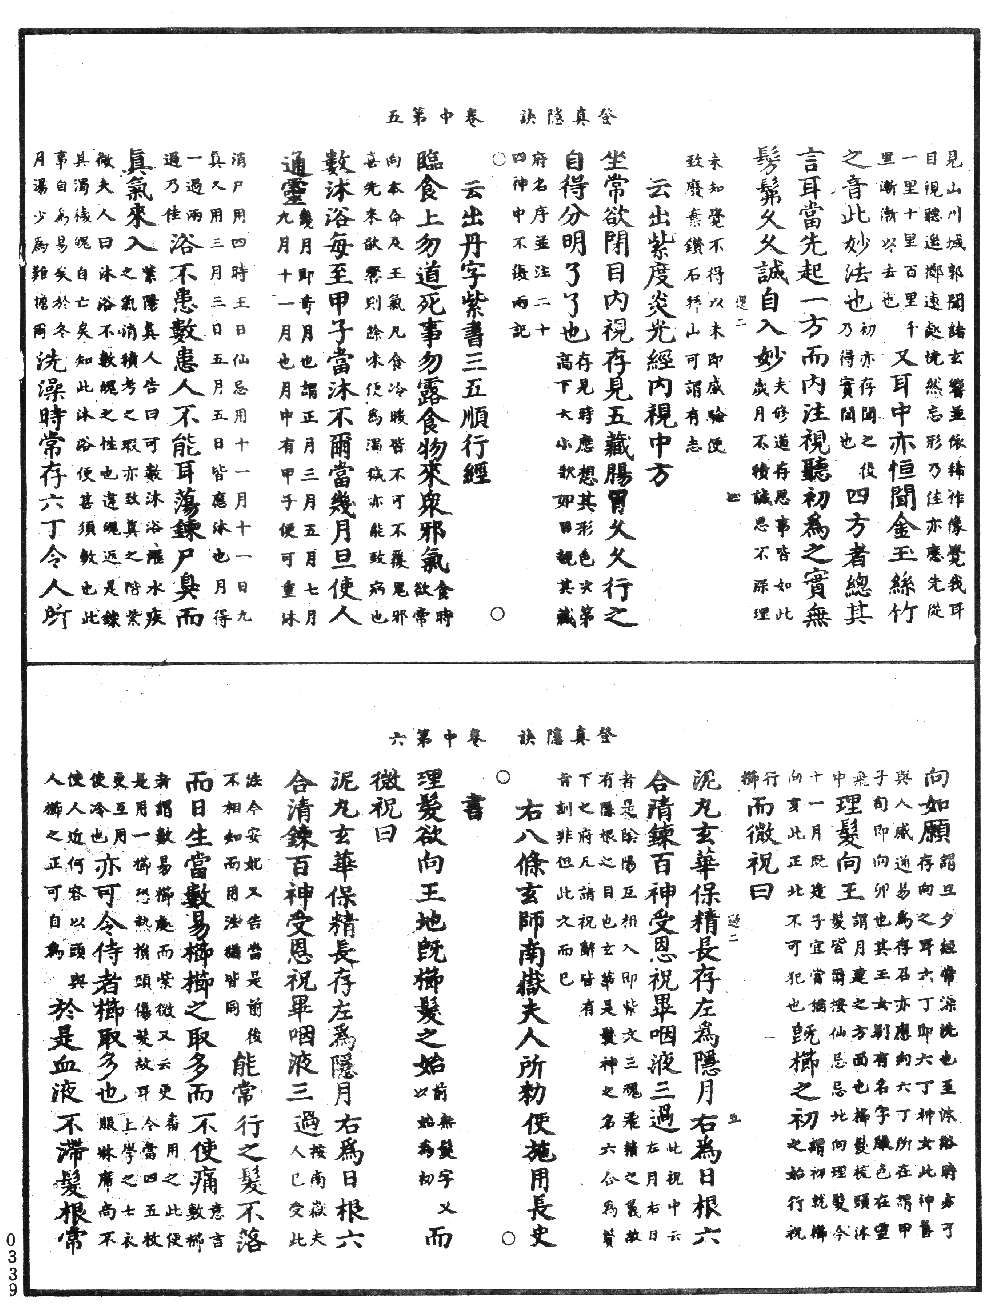 登真隱訣　卷中第五
見山川城郭聞諸玄響並依稀作像覺我耳
目視聽進擲遠超恍然忘形乃佳亦應先從
一里十里百里千
里漸漸以去也
又耳中亦恒聞金玉絲竹
之音此妙法也
初亦存聞之後
乃得實聞也
四方者總其
言耳當先起一方而內注視聽初為之實無
髣髴久久誠自入妙
夫修道存思事皆如此
歲月不積誠思不深理
未知覺不得以未即感驗便
致廢棄鑽石拜山可謂有志
云出紫度炎光經內視中方
坐常欲閉目內視存見五藏腸胃久久行之
自得分明了了也
存見時應想其形色次第
高下大小歷歷如目覩其藏
府名序並注二十
四神中不復兩記
云出丹字紫書三五順行經
臨食上勿道死事勿露食物來衆邪氣
食時欲常
向本命及王氣凡食冷暖皆不可不覆忌邪
喜先來歆響則餘味便為濁穢亦能致病也
數沐浴每至甲子當沐不爾當幾月旦使人
通靈
幾月即奇月也謂正月三月五月七月
九月十一月也月中有甲子便可重沐
消尸用四時王日仙忌用十一月十一日九
真又用三月三日五月五日皆應沐也月得
一過兩
過乃佳
浴不患數患人不能耳蕩鍊尸臭而
真氣來入
紫陽真人告曰可數沐浴濯水疾
之氣消積考之瑕亦致真之階紫
微夫人曰沐浴不數魄之性也違魄返是鍊
其濁穢魄自亡矣知此沐浴便甚須數也此
事自為易矣於冬
月湯少為難擔爾
洗澡時常存六丁令人所
登真隱訣　卷中第六
向如願
謂旦夕經常澡洗也至沐浴時亦可
存向之耳六丁即六丁神女此神舊
與人感通易為存召亦應向六丁所在謂甲
子旬即向卯也其玉女別有名字服色在靈
飛六
中
理髮向王
謂月建之方面也櫛髮梳頭沐
髮皆爾按仙忌忌北向理髮今
十一月既建子宜當猶
向亥此正北不可犯也
既櫛之初
謂初就櫛
之始行祝
行
櫛
而微祝曰
泥丸玄華保精長存左為隱月右為日根六
合清鍊百神受恩祝畢咽液三過
此祝中云
左月右日
者是陰陽互相入即紫文三魂飛精之義故
有隱根之目也玄華是髮神之名六合為贊
下之府凡諸祝辭皆有
旨訓非但此文而已
右八條玄師南嶽夫人所勑便施用長史
書
理髮欲向王地既櫛髮之始
前無髮字又
以始為初
而
微祝曰
泥丸玄華保精長存左為隱月右為日根六
合清鍊百神受恩祝畢咽液三過
按南嶽夫
人已受此
法今安妃又告當是前後
不相知而用法猶皆同
能常行之髮不落
而日生當數易櫛櫛之取多而不使痛
意言
數櫛
者謂數易櫛處而紫微又云更番用之此便
是用一櫛恐熱損頭傷髮故耳今當四五枚
更互用
使冷也
亦可令侍者櫛取多也
上學之七衣
服牀席尚不
使人近何容以頭與
人櫛之正可自為
於是血液不滯髮根常
0339